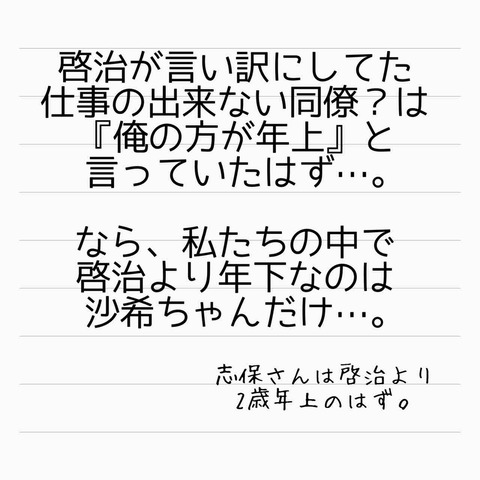 啓治が言い訳にしてた
仕事の出来ない同僚？は
『俺の方が年上』と
言っていたはず…。
なら、私たちの中で
啓治より年下なのは
沙希ちゃんだけ…。
志保さんは啓治より
2歳年上のはず。